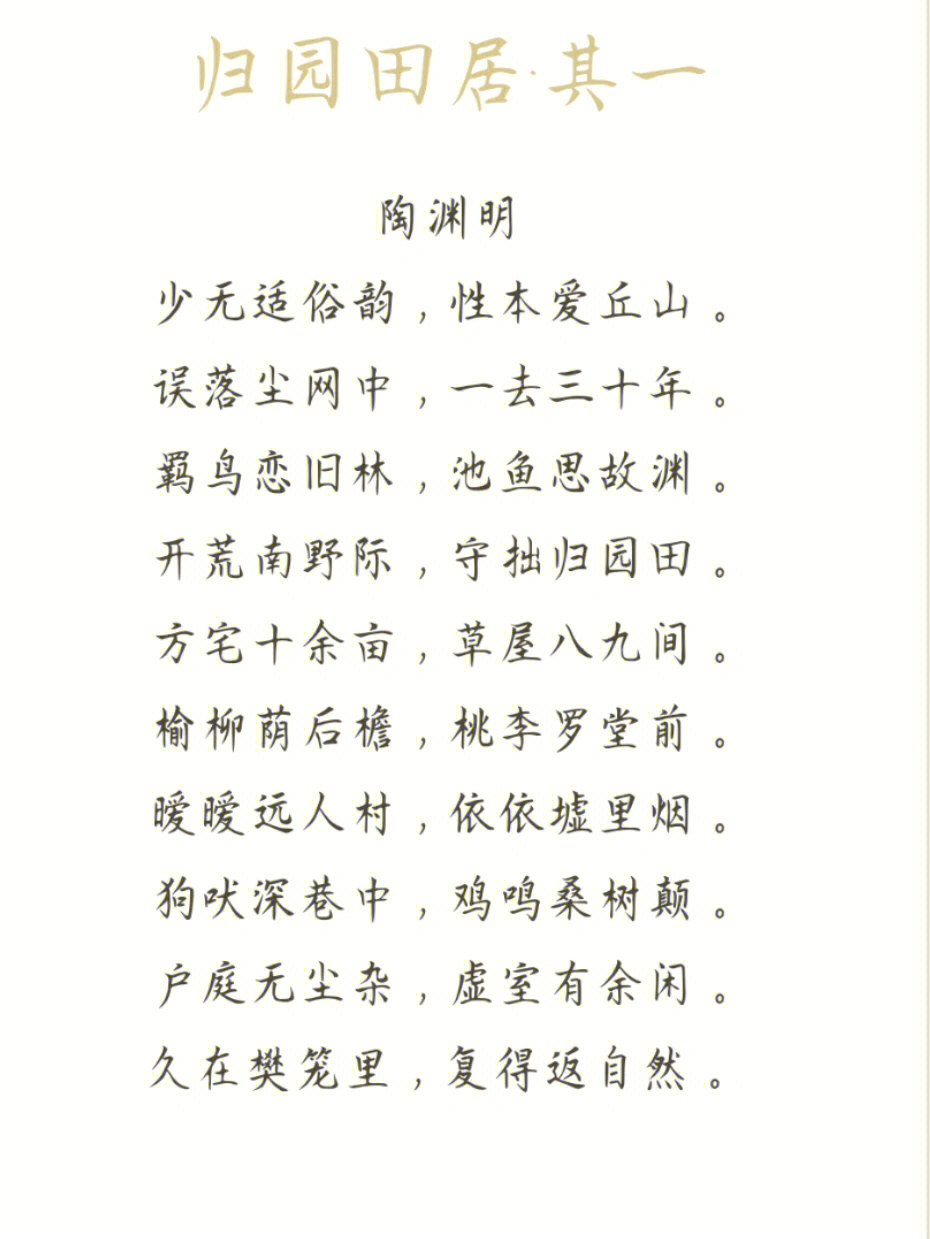 归园田居·其一
陶渊明
少无适俗韵，性本爱丘山。
误落尘网中，一去三十年。
羁鸟恋旧林，池鱼思故渊。
开荒南野际，守拙归园田。
方宅十余亩，草屋八九间。
榆柳荫后檐，桃李罗堂前。
暧暧远人村，依依墟里烟。
狗吠深巷中，鸡鸣桑树颠。
户庭无尘杂，虚室有余闲。
久在樊笼里，复得返自然。